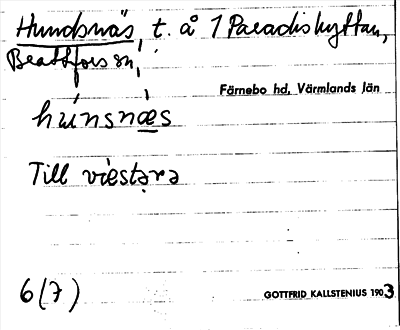 Hundsnäs, t. å 1 Paradishyttan,
Brattfors sn,
Färnebo hd, Värmlands län
húnsnæ̀s
Till viestəra
6(7)
GOTTFRID KALLSTENIUS 1903